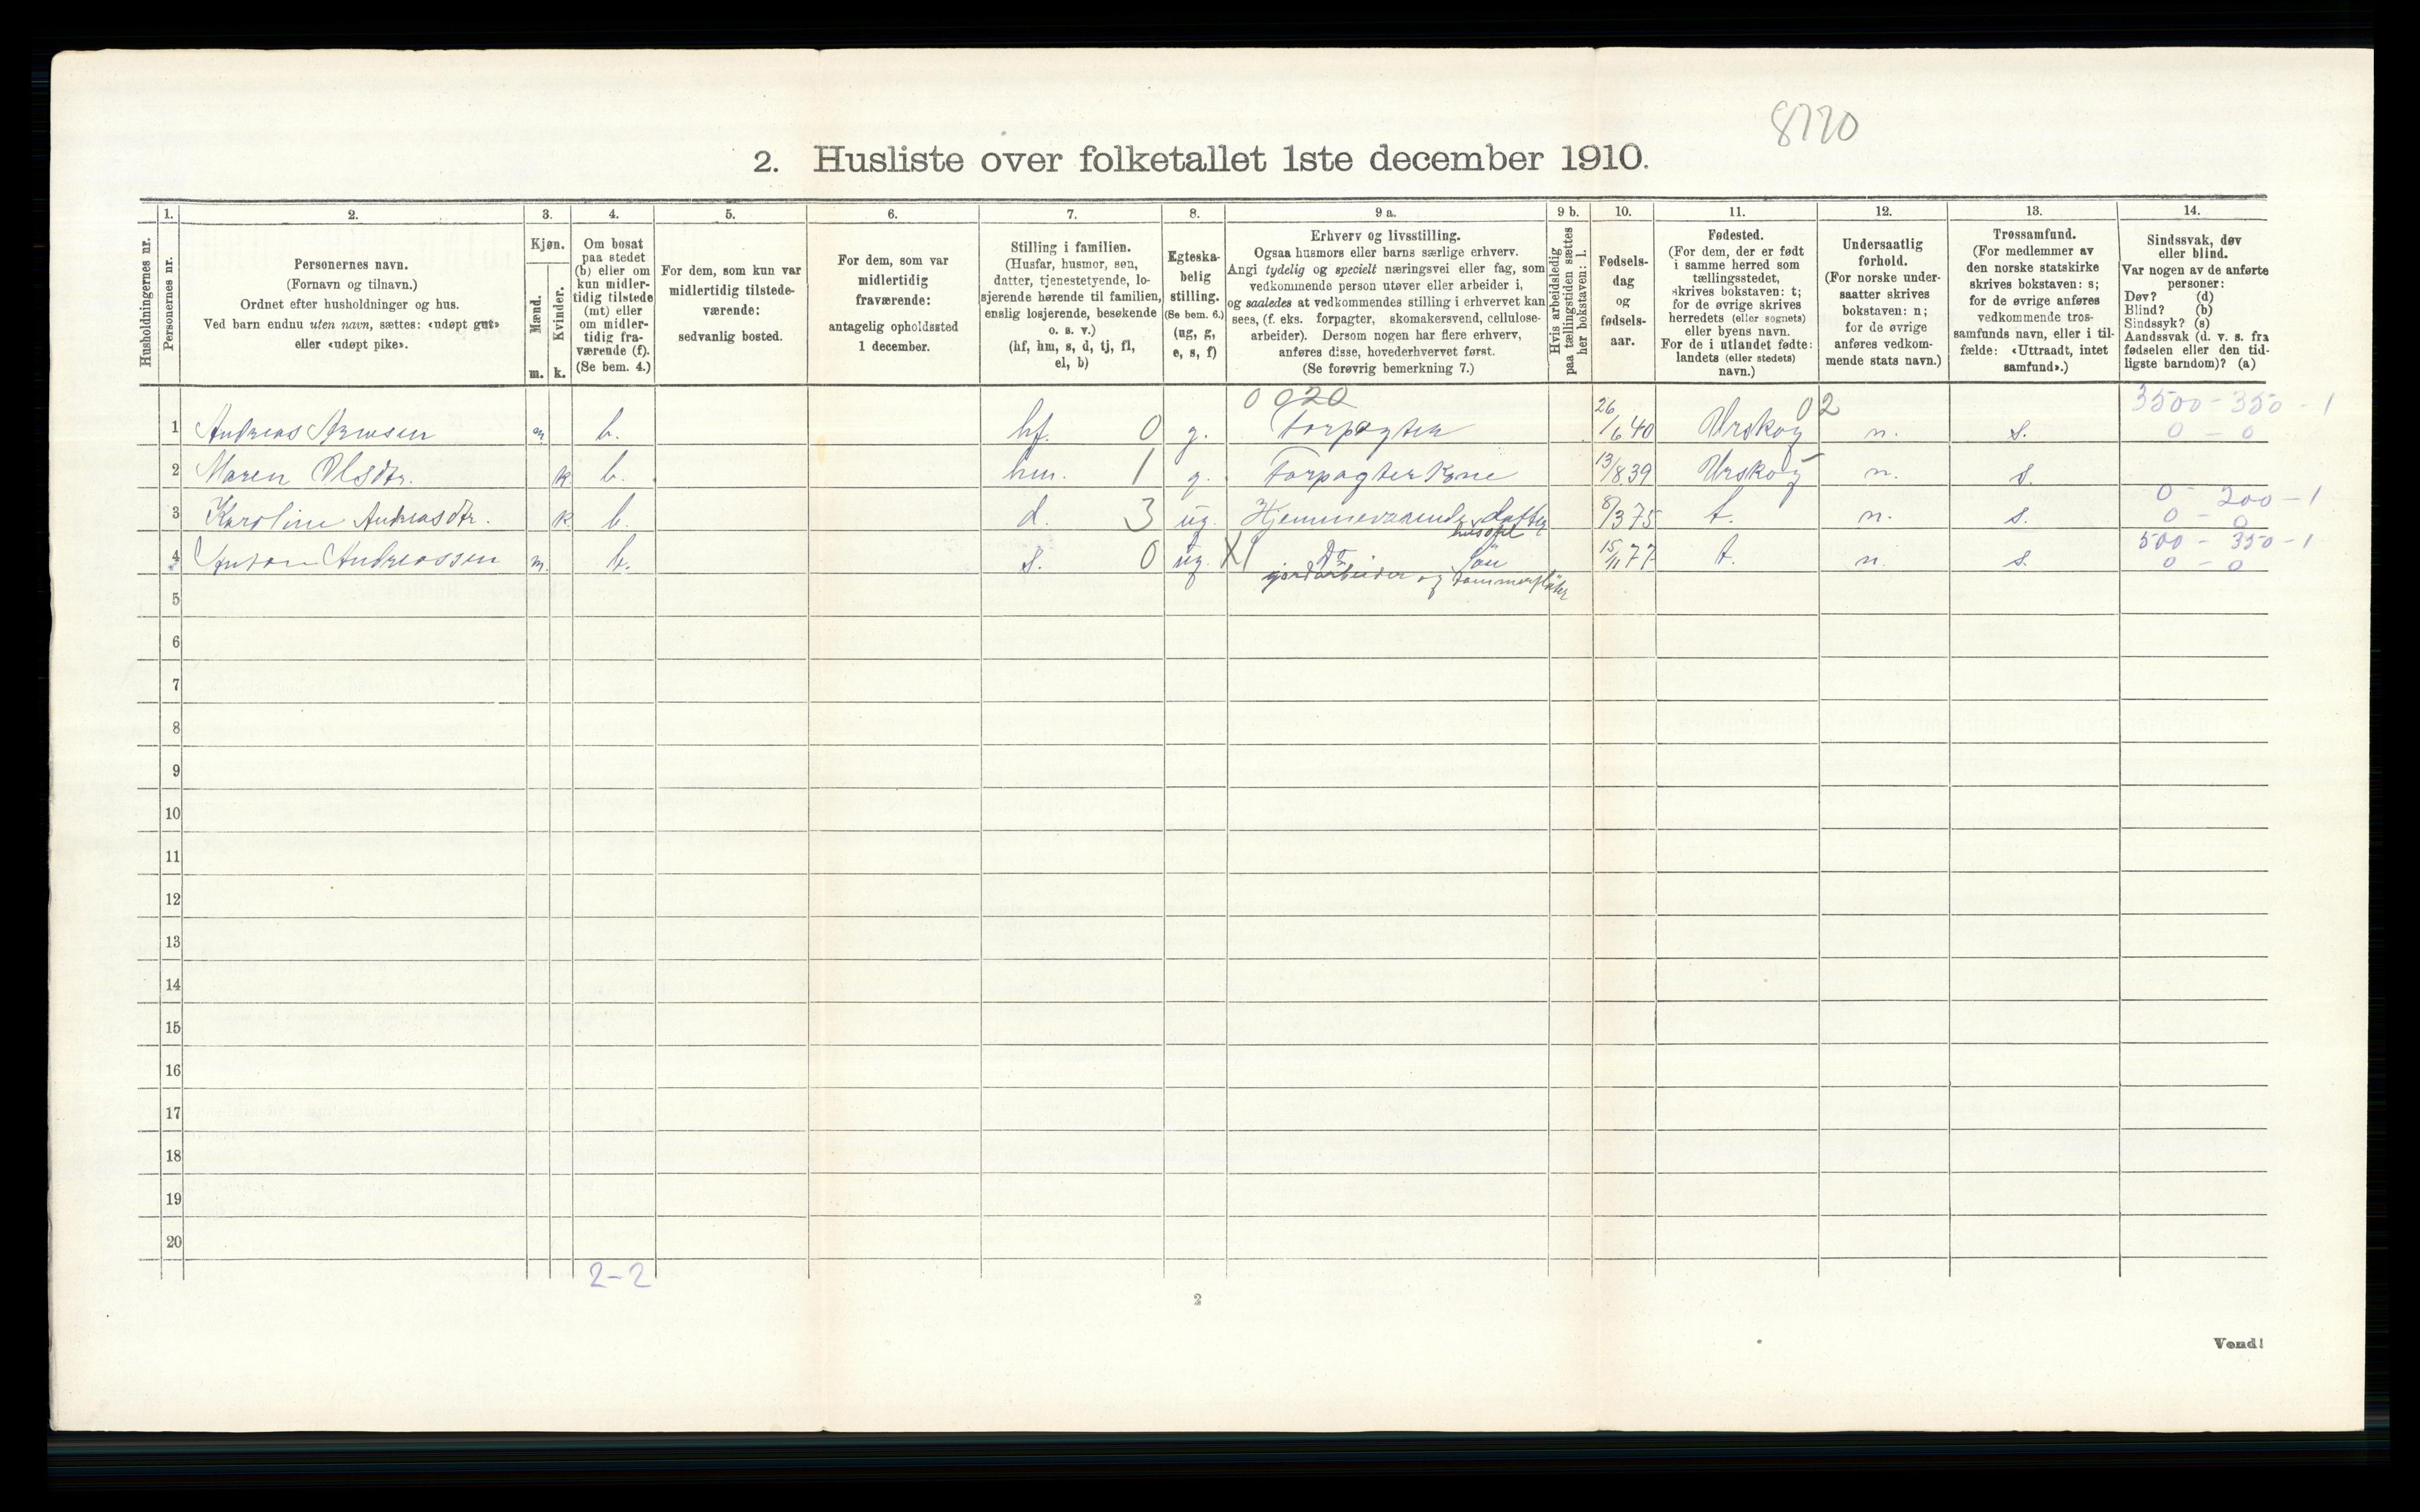 8770
2. Husliste over folketallet 1ste december 1910.
Husholdningernes nr.
1.
Personernes nr.
2.
Personernes navn.
(Fornavn og tilnavn.)
Ordnet efter husholdninger og hus.
Ved barn endnu uten navn, sættes: «udøpt gut»
eller «udøpt pike».
3.
Kjøn.
Mænd.
m.
Kvinder.
k.
4.
Om bosat
paa stedet
(b) eller om
kun midler-
tidig tilstede
(mt) eller
om midler-
tidig fra-
værende (f).
(Se bem. 4.)
5.
For dem, som kun var
midlertidig tilstede-
værende:
sedvanlig bosted.
6.
For dem, som var
midlertidig
fraværende:
antagelig opholdssted
1 december.
7.
Stilling i familien.
(Husfar, husmor, søn,
datter, tjenestetyende, lo-
sjerende hørende til familien,
enslig losjerende, besøkende
o. s. v.)
(hf, hm, s, d, tj, fl,
el, b)
8.
Egteska-
belig
stilling.
(Se bem. 6.)
(ug, g,
e, s, f)
9 a.
Erhverv og livsstilling.
Ogsaa husmors eller barns særlige erhverv.
Angi tydelig og specielt næringsvei eller fag, som
vedkommende person utøver eller arbeider i,
og saaledes at vedkommendes stilling i erhvervet kan
sees, (f. eks. forpagter, skomakersvend, cellulose-
arbeider). Dersom nogen har flere erhverv,
anføres disse, hovederhvervet først.
(Se forøvrig bemerkning 7.)
9 b.
Hvis arbeidsledig
paa tællingstiden sættes
her bokstaven: l.
10.
Fødsels-
dag
og
fødsels-
aar.
11.
Fødested.
(For dem, der er født
i samme herred som
tællingsstedet,
skrives bokstaven: t;
for de øvrige skrives
herredets (eller sognets)
eller byens navn.
For de i utlandet fødte:
landets (eller stedets)
navn.)
12.
Undersaatlig
forhold.
(For norske under-
saatter skrives
bokstaven: n;
for de øvrige
anføres vedkom-
mende stats navn.)
13.
Trossamfund.
(For medlemmer av
den norske statskirke
skrives bokstaven: s;
for de øvrige anføres
vedkommende tros-
samfunds navn, eller i til-
fælde: «Uttraadt, intet
samfund».)
14.
Sindssvak, døv
eller blind.
Var nogen av de anførte
personer:
Døv? (d)
Blind? (b)
Sindssyk? (s)
Aandssvak (d. v. s. fra
fødselen eller den tid-
ligste barndom)? (a)
0920 02 3500 - 350 - 1
1 Andreas Arnesen m b. hf. 0 g. Forpagter 26/6 40 Urskog n. s. 0 - 0
2 Maren Olsdtr. k b. hm. 1 g. Forpagter Kone 13/8 39 Urskog n. s.
0 - 200 - 1
3 Karoline Andreasdtr. k b. d. 3 ug. Hjemmeværende datter 8/3 75 t. n. s. 0 - 0
500 - 350 - 1
4 Anton Andreassen m. b. s. 0 ug. X1 Do Søn 15/11 77 t. n. s. 0 - 0
jordarbeider og tømmerfløter
5
6
7
8
9
10
11
12
13
14
15
16
17
18
19
20
2-2
2
Vend!